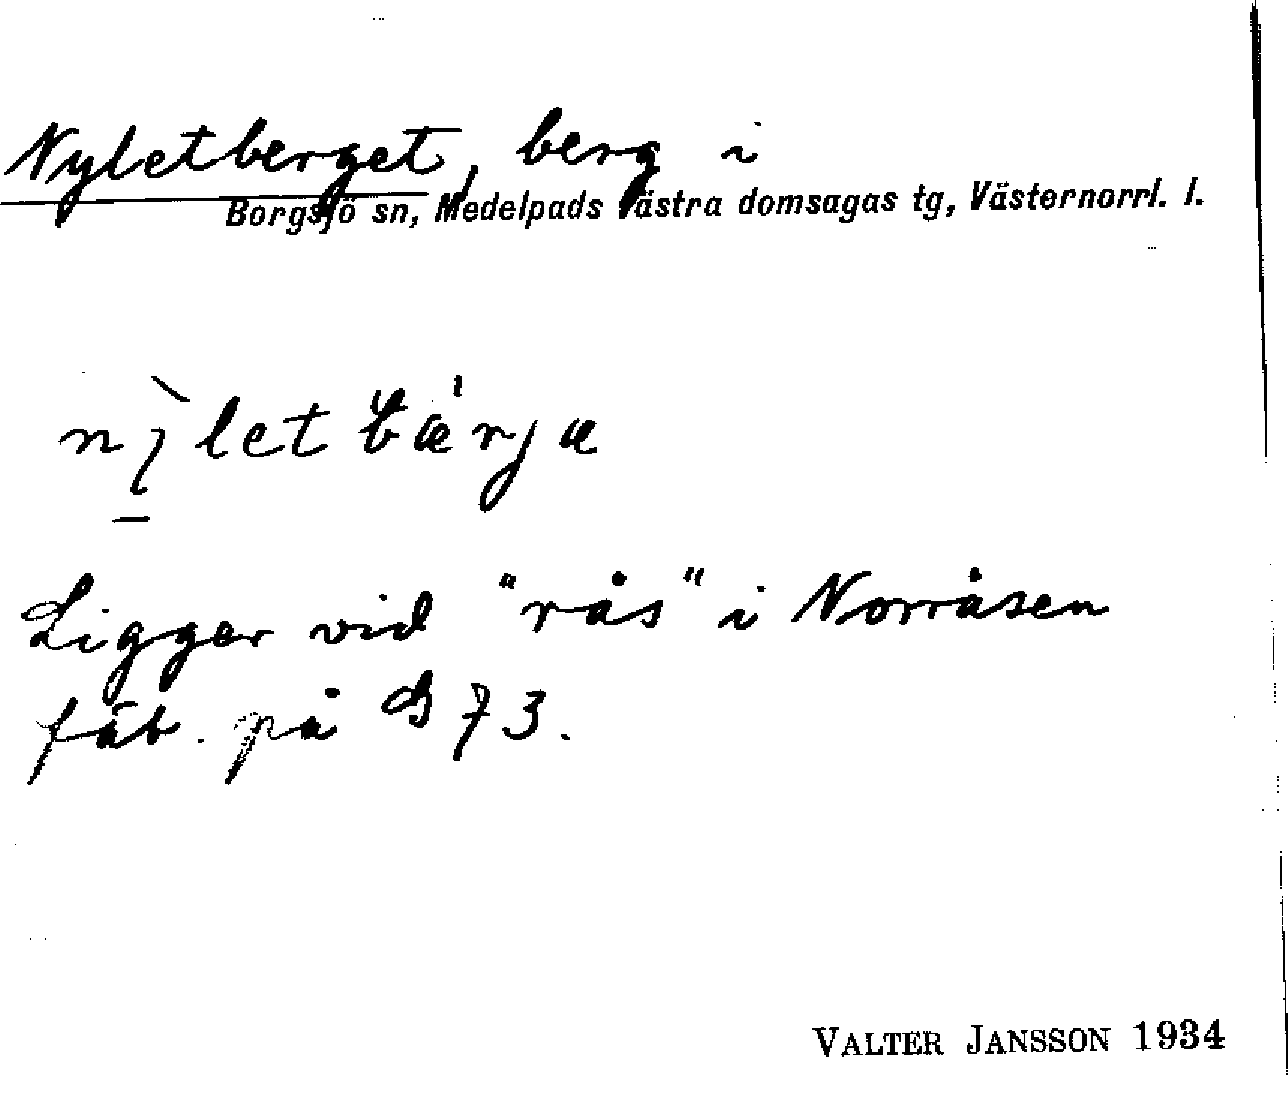 Nyletberget, berg i
Borgsjö sn, Medelpads västra domsagas tg, Västernorrl. l.
nỳletbærjæ
Ligger vid "rås" i Norråsen
fäb. på B 73.
VALTER JANSSON 1934